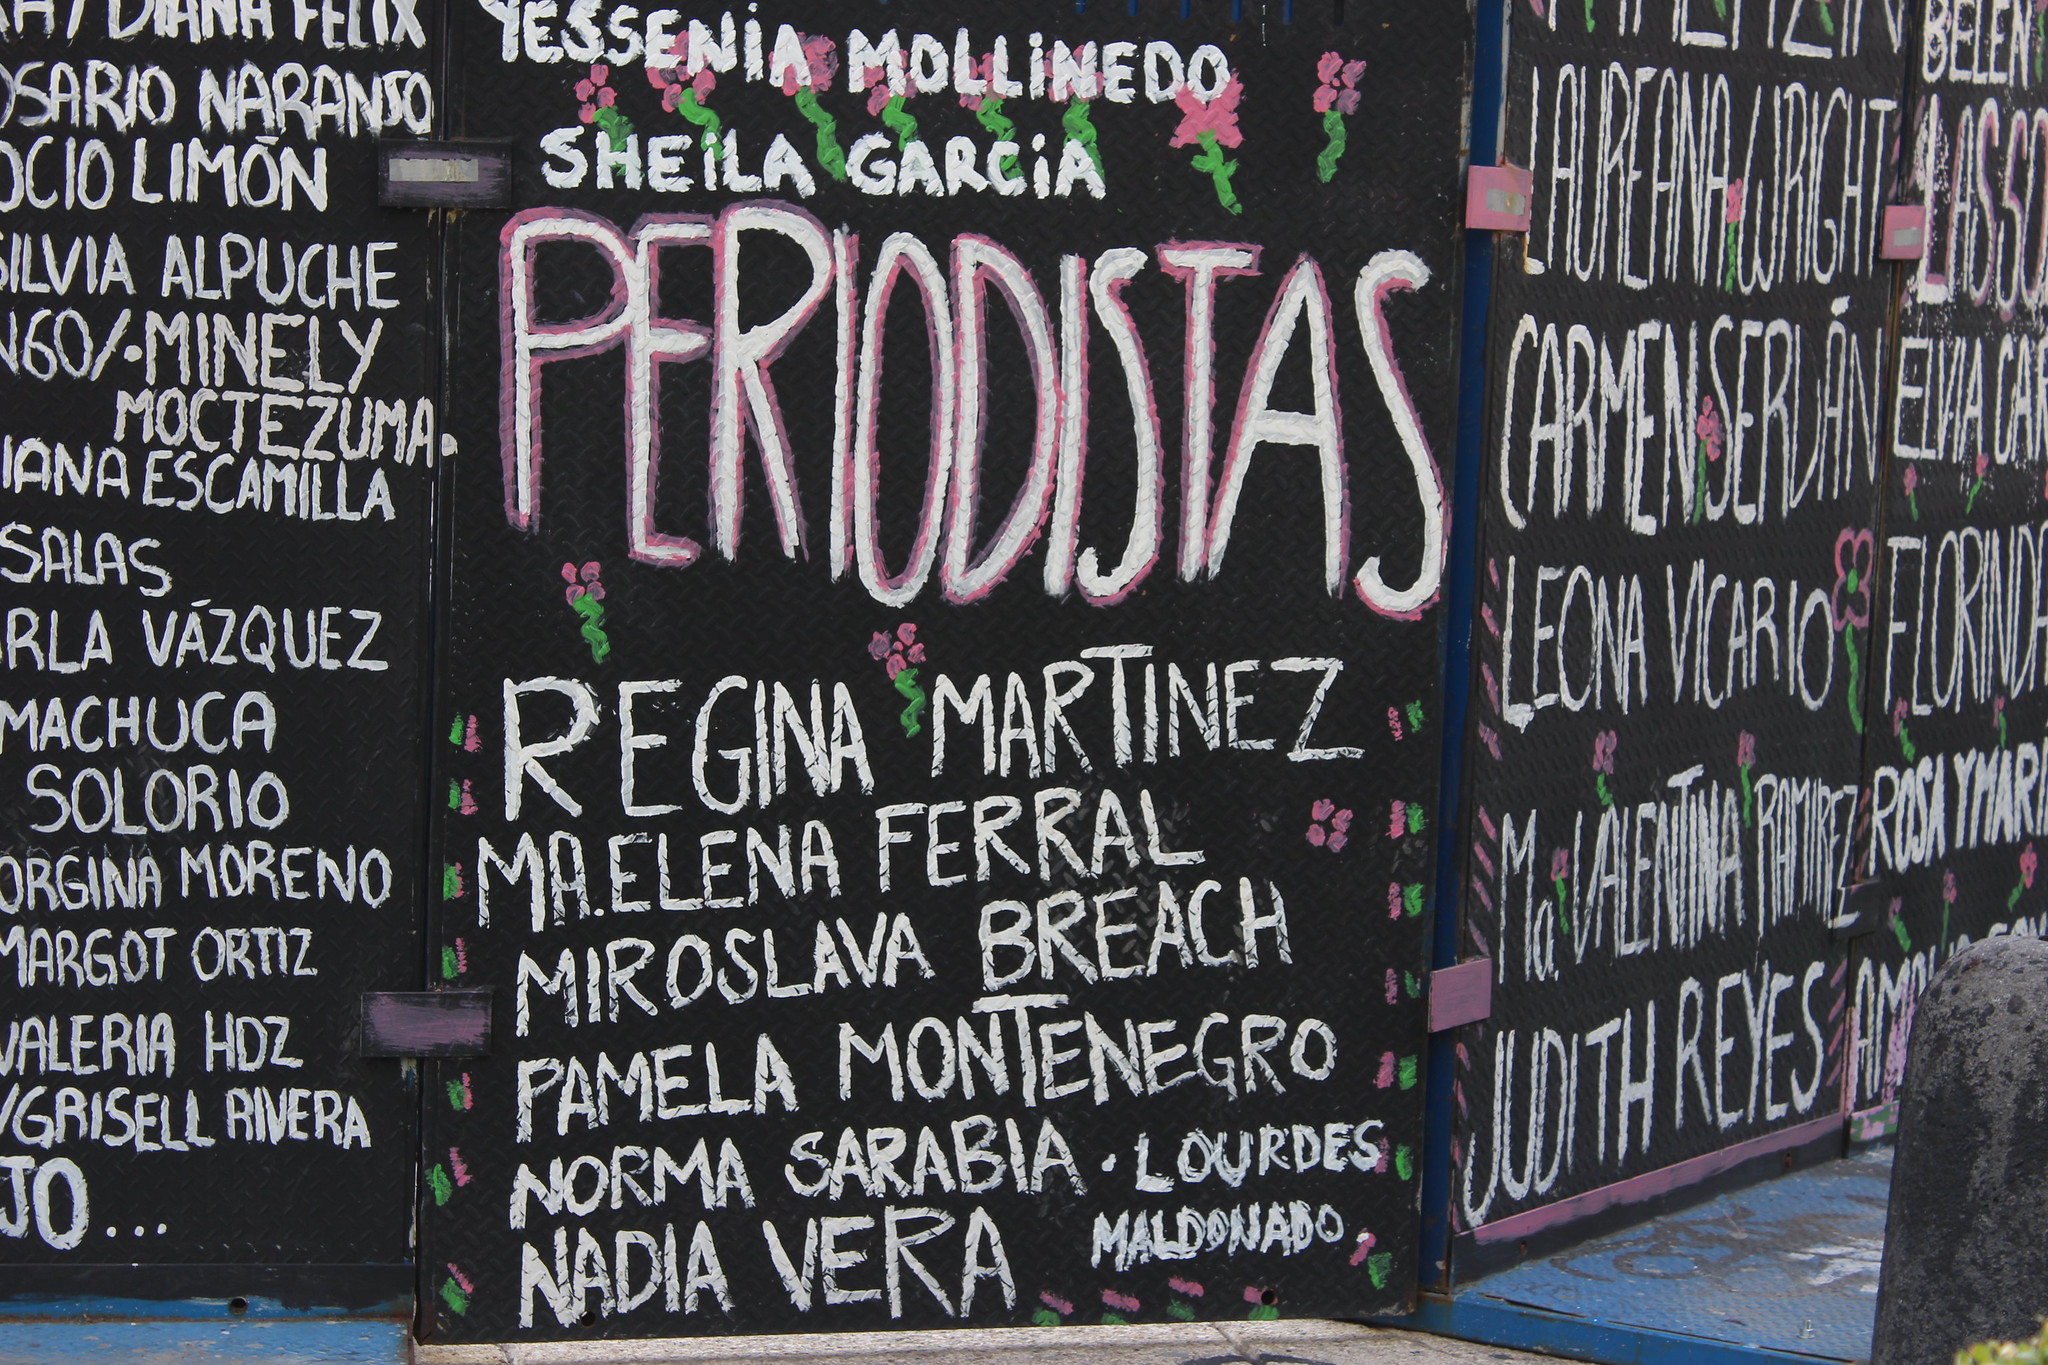 DIANA FELIX
NARANJO
LIMÓN
SILVIA ALPUCHE
MINELY
MOCTEZUMA.
ESCAMILLA
SALAS
VÁZQUEZ
MACHUCA
SOLORIO
MORENO
MARGOT ORTIZ
VALERIA HDZ
/GRISELL RIVERA
JO...
YESSENIA MOLLINEDO
SHEILA GARCIA
PERIODISTAS
REGINA MARTINEZ
MA. ELENA FERRAL
MIROSLAVA BREACH
PAMELA MONTENEGRO
NORMA SARABIA · LOURDES
NADIA VERA MALDONADO
LAUREANA WRIGHT
CARMEN SERDÁN
LEONA VICARIO
Ma. VALENTINA RAMIREZ
JUDITH REYES
BELEN
ELVIA
FLORINDA
ROSA Y MARI